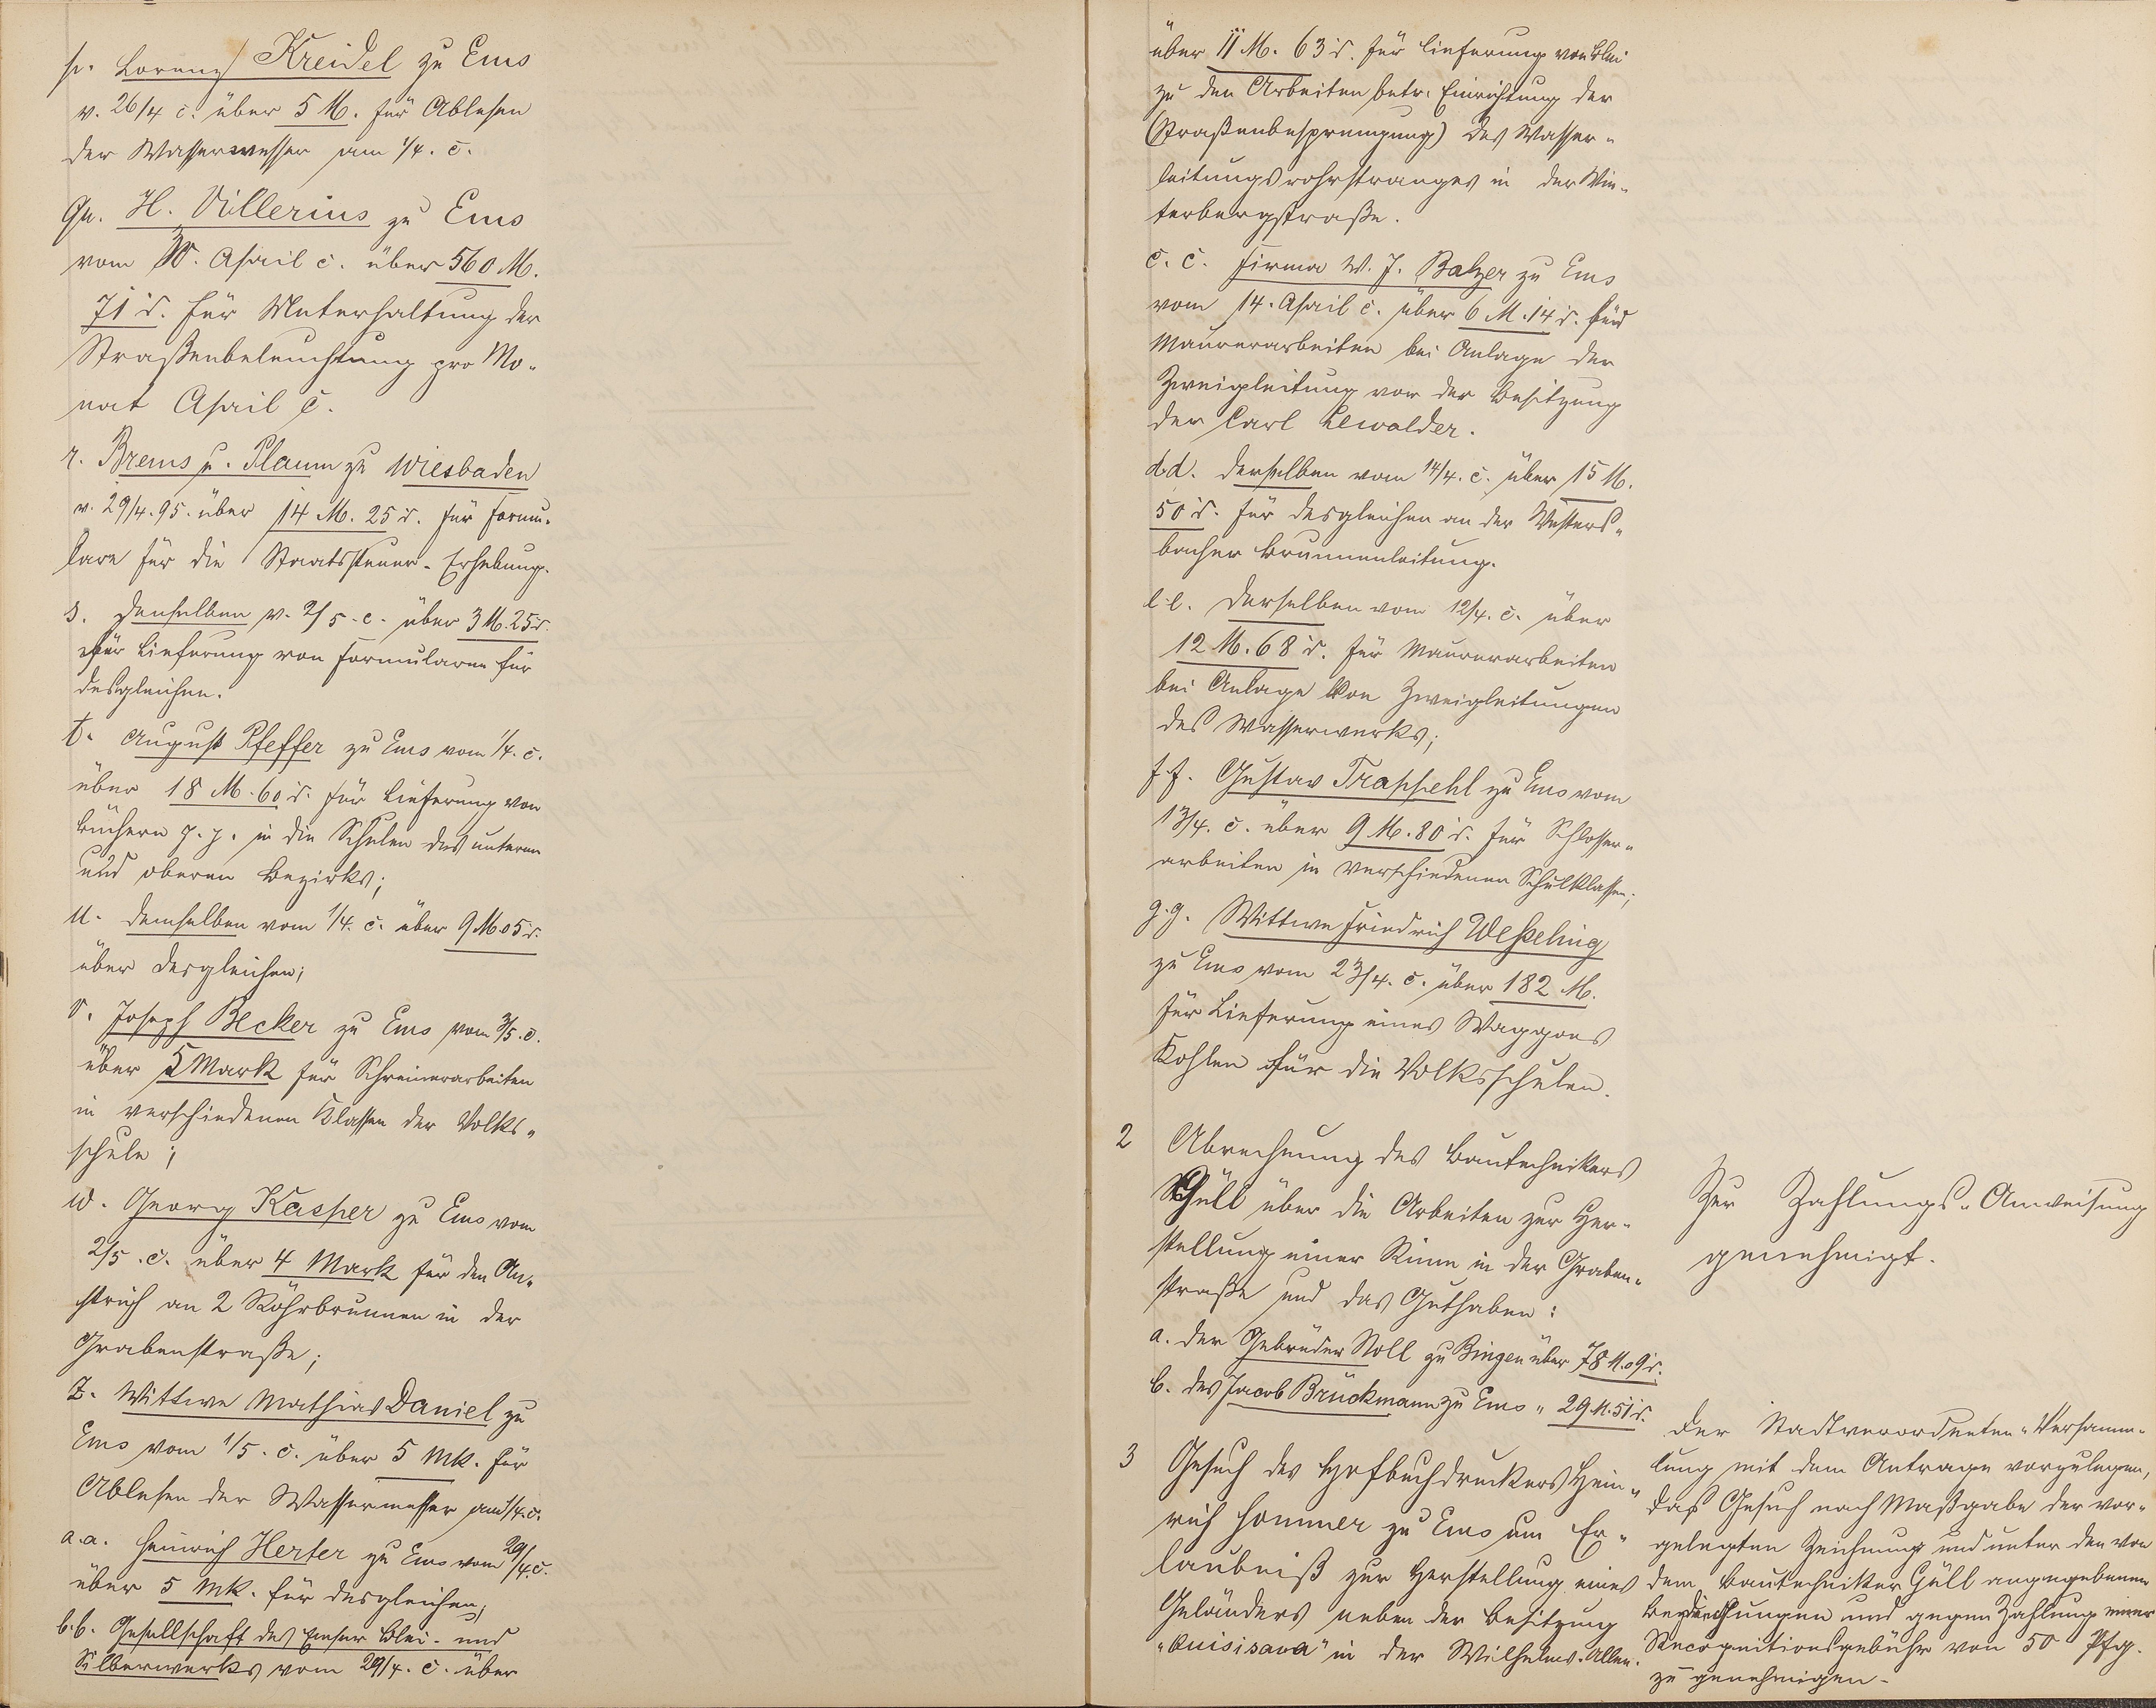 p. Lorenz Kreidel zu Ems
v. 26/4 c. über 5 M. für Ablesen
der Wassermesser pro 1/4. c.
qu. H. Villerius zu Ems
vom 30. April c. über 560 M.
71 d. für Unterhaltung der
Straßenbeleuchtung pro Mo-
nat April c.
r. Brems u. Plaum zu Wiesbaden
v. 29/4. 95. über 14 M. 25 d. für Formu-
lare für die Staatssteuer-Erhebung.
s. Denselben v. 2/5. c. über 3 M. 25 d.
für Lieferung von Formularen für
desgleichen.
t. August Pfeffer zu Ems vom 1/4. c.
über 18 M. 60 d. für Lieferung von
Büchern p. p. in die Schulen des unteren
und oberen Bezirks;
u. Demselben vom 1/4. c. über 9 M 05 d.
über desgleichen;
v. Joseph Becker zu Ems vom 3/5. c.
über 5 Mark für Schreinerarbeiten
in verschiedenen Klassen der Volks-
schule;
w. Georg Kasper zu Ems vom
2/5. c. über 4 Mark für den An-
strich an 2 Röhrbrunnen in der
Grabenstraße;
z. Wittwe Mathias Daniel zu
Ems vom 1/5. c. über 5 Mk. für
Ablesen der Wassermesser pro 1/4. c.
a.a. Heinrich Herter zu Ems vom 29/4. c.
über 5 Mk. für desgleichen;
b.b. Gesellschaft des Emser Blei- und
Silberwerks vom 29/4. c. über
über 11 M. 63 d. für Lieferung von Blei
zu den Arbeiten betr. Einrichtung der
(Straßenbesprengung) des Wasser-
leitungsrohrstranges in der Win-
terbergstraße.
c. c. Firma W. J. Balzer zu Ems
vom 14. April c. über 6 M. 14 d. für
Maurerarbeiten bei Anlage der
Zweigleitung vor der Besitzung
der Carl Lewalder.
d.d. Derselben vom 14/4. c. über 15 M.
50 d. für desgleichen an der
bacher Brunnenleitung.
e.e. Derselben vom 12/4. c. über
12 M. 68 d. für Maurerarbeiten
bei Anlage von Zweigleitungen
des Wasserwerks;
f.f. Gustav Trappehl zu Ems vom
13/4. c. über 9 M. 80 d. für Schlosser-
arbeiten in verschiedenen Schulklassen;
g.g. Wittwe Friedrich Weßeling
zu Ems vom 23/4. c. über 182 M.
für Lieferung eines Waggons
Kohlen für die Volksschulen.
2 Abrechnung des Bautechnikers
Güll über die Arbeiten zur Her-
stellung einer Rinne in der Graben-
straße und das Guthaben:
a. der Gebrüder Noll zu Bingen über 78 M. 09 d.
b. des Jacob Brückmann zu Ems " 29 M. 51 d.
Zur Zahlungs-Anweisung
genehmigt.
3 Gesuch des Hofbuchdruckers Hein-
rich Sommer zu Ems um Er-
laubniß zur Herstellung eines
Geländers neben der Besitzung
"Quisisana" in der Wilhelms-Allee.
Der Stadtverordneten-Versamm-
lung mit dem Antrage vorzulegen,
das Gesuch nach Maßgabe der vor-
gelegten Zeichnung und unter den von
dem Bautechniker Güll angegebenen
Bedingungen und gegen Zahlung einer
Recognitionsgebühr von 50 Pfg.
zu genehmigen.